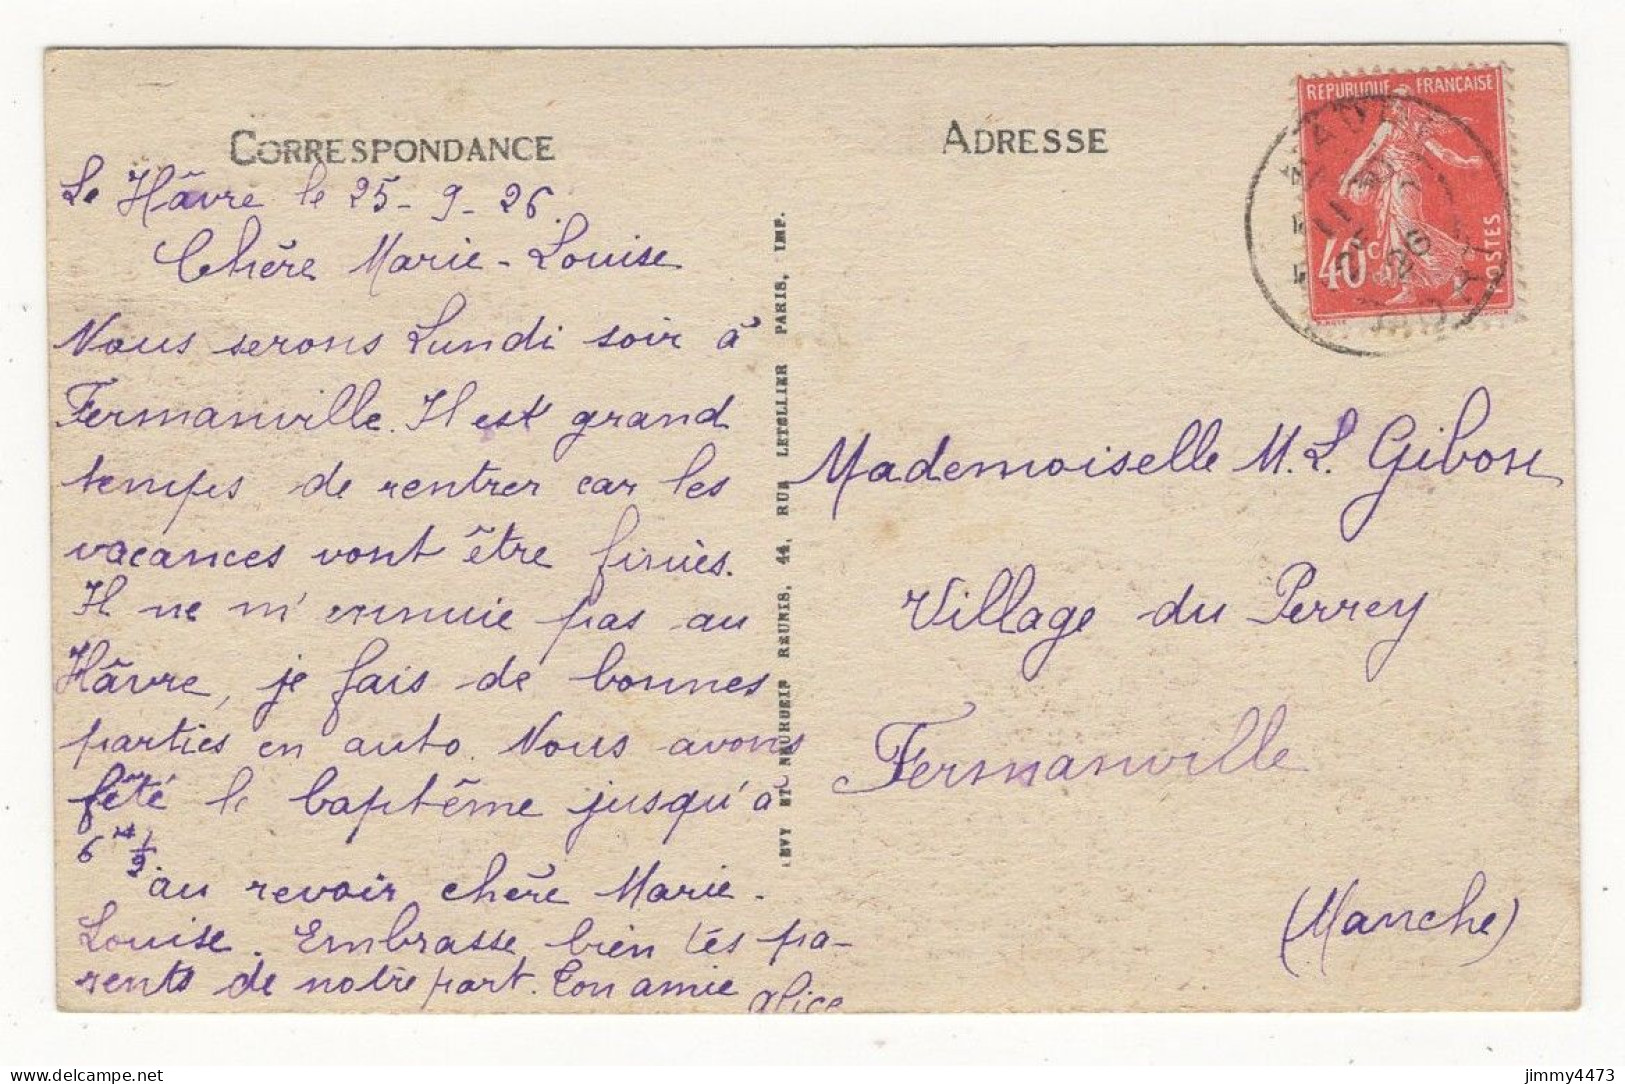 CORRESPONDANCE
Le Hâvre le 25-9-26.
Chère Marie-Louise
Nous serons Lundi soir à
Fermanville. Il est grand
temps de rentrer car les
vacances vont être finies.
Il ne m'ennuie pas au
Hâvre, je fais de bonnes
parties en auto. Nous avons
fêté le baptême jusqu'à
6 H 1/2
au revoir chère Marie-
Louise. Embrasse bien tes pa-
rents de notre part. Ton amie Alice
LEVY ET NEURDEIN REUNIS, 44, RUE LETELLIER PARIS, IMP.
ADRESSE
REPUBLIQUE FRANÇAISE
40c
POSTES
26
Mademoiselle M. L. Gibon
Village du Perrey
Fermanville
(Manche)
jimmy4473